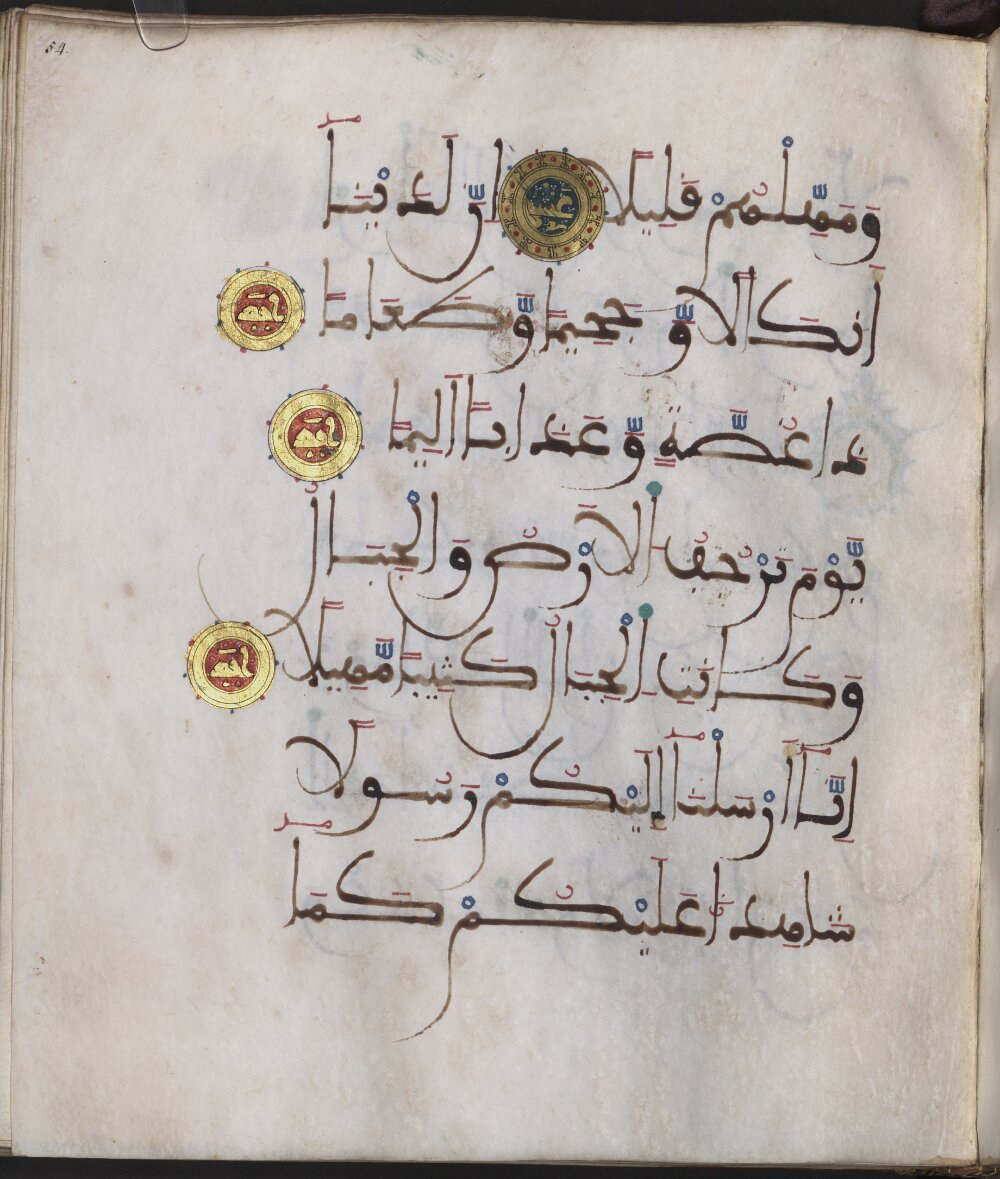 54.
وَمَهِّلْهُمْ قَلِيلًا اِنَّ لَدَيْنَآ
أَنكَالًا وَّجَحِيمًا وَّطَعَامًا
ذَا غُصَّةٍ وَّعَذَابًا اَلِيمًا
يَّوْمَ تَرْجُفُ الَارْضُ وَالْجِبَالُ
وَكَانَتِ الْجِبَالُ كَثِيبًا مَّهِيلًا
اِنَّآ أَرْسَلْنَآ إِلَيْكُمْ رَسُولًا
شَاهِدًا عَلَيْكُمْ كَمَآ